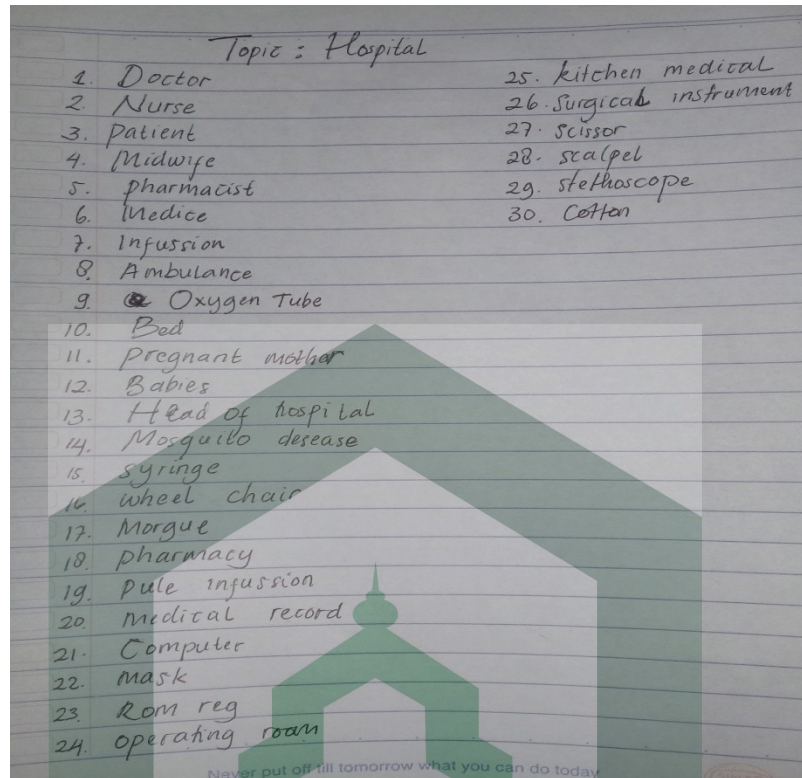 Topic : Hospital
1. Doctor
2. Nurse
3. patient
4. Midwife
5. pharmacist
6. Medice
7. Infussion
8. Ambulance
9. Oxygen Tube
10. Bed
11. Pregnant mother
12. Babies
13. Head of hospital
14. Mosquito desease
15. syringe
16. wheel chair
17. Morgue
18. pharmacy
19. Pule infussion
20. medical record
21. Computer
22. mask
23. Rom reg
24. operating room
25. kitchen medical
26. Surgical instrument
27. scissor
28. scalpel
29. stethoscope
30. Cotton
Never put off till tomorrow what you can do today